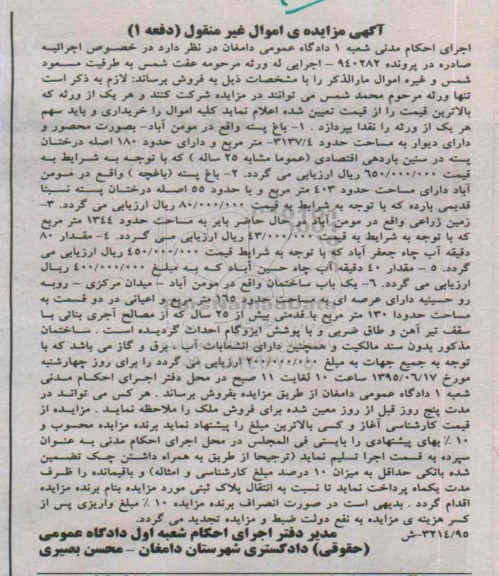 آگهی مزایده ی اموال غیر منقول (دفعه ۱)
اجرای احکام مدنی شعبه ۱ دادگاه عمومی دامغان در نظر دارد در خصوص اجرائیه
صادره در پرونده ۹۴۰۲۸۲ – اجرایی له ورثه مرحومه عفت شمس به طرفیت مسعود
شمس و غیره اموال مارالذکر را با مشخصات ذیل به فروش برساند: لازم به ذکر است
تنها ورثه مرحوم محمد شمس می توانند در مزایده شرکت کنند و هر یک از ورثه که
بالاترین قیمت را از قیمت تعیین شده اعلام نماید کلیه اموال را خریداری و باید سهم
هر یک از ورثه را نقدا بپردازد . ۱- باغ پسته واقع در مومن آباد- بصورت محصور و
دارای دیوار به مساحت حدود ۳۱۳۷/۴- متر مربع و دارای حدود ۱۸۰ اصله درختان
پسته در سنین باردهی اقتصادی (عموما مشابه ۲۵ ساله ) که با توجه به شرایط به
قیمت ۶۵۰/۰۰۰/۰۰۰ ریال ارزیابی می گردد. ۲- باغ پسته (باغچه ) واقع در مومن
آباد دارای مساحت حدود ۴۰۳ متر مربع و با حدود ۵۵ اصله درختان پسته نسبتا
قدیمی بارده که با توجه به شرایط به قیمت ۸۰/۰۰۰/۰۰۰ ریال ارزیابی می گردد. ۳-
زمین زراعی واقع در مومن آباد در حال حاضر بایر به مساحت حدود ۱۳۴۴ متر مربع
که با توجه به شرایط به قیمت ۴۳/۰۰۰/۰۰۰ ریال ارزیابی می گردد. ۴- مقدار ۸۰
دقیقه آب چاه جعفر آباد که با توجه به شرایط قیمت ۴۵۰/۰۰۰/۰۰۰ ریال ارزیابی می
گردد. ۵ – مقدار ۴۰ دقیقه آب چاه حسین آباد که به مبلغ ۴۰۰/۰۰۰/۰۰۰ ریال
ارزیابی می گردد. ۶- یک باب ساختمان واقع در مومن آباد – میدان مرکزی – روبه
رو حسینیه دارای عرصه ای به مساحت حدود ۲۶۵ متر مربع و اعیانی در دو قسمت به
مساحت حدودا ۱۳۰ متر مربع با قدمتی بیش از ۲۵ سال که از مصالح آجری بنائی با
سقف تیر آهن و طاق ضربی و با پوشش ایزوگام احداث گردیده است . ساختمان
مذکور بدون سند مالکیت و همچنین دارای انشعابات آب ، برق و گاز می باشد که با
توجه به جمیع جهات به مبلغ ۲۰۰/۰۰۰/۰۰۰ ارزیابی می گردد را برای روز چهارشنبه
مورخ ۱۳۹۵/۰۶/۱۷ ساعت ۱۰ لغایت ۱۱ صبح در محل دفتر اجرای احکام مدنی
شعبه ۱ دادگاه عمومی دامغان از طریق مزایده بفروش برساند . هر کس می تواند در
مدت پنج روز قبل از روز معین شده برای فروش ملک را ملاحظه نماید . مزایده از
قیمت کارشناسی آغاز و کسی بالاترین مبلغ را پیشنهاد نماید برنده مزایده محسوب و
۱۰ ٪ بهای پیشنهادی را بایستی فی المجلس در محل اجرای احکام مدنی به عنوان
سپرده به قسمت اجرا تسلیم نماید (ترجیحا از طریق به همراه داشتن چک تضمین
شده بانکی حداقل به میزان ۱۰ درصد مبلغ کارشناسی و امثاله) و باقیمانده را ظرف
مدت یکماه پرداخت نماید تا نسبت به انتقال پلاک ثبتی مورد مزایده بنام برنده مزایده
اقدام گردد . بدیهی است در صورت انصراف برنده مزایده ۱۰ ٪ مبلغ واریزی پس از
کسر هزینه ی مزایده به نفع دولت ضبط و مزایده تجدید می گردد.
۳۲۱۴/۹۵-ش
مدیر دفتر اجرای احکام شعبه اول دادگاه عمومی
(حقوقی) دادگستری شهرستان دامغان – محسن بصیری